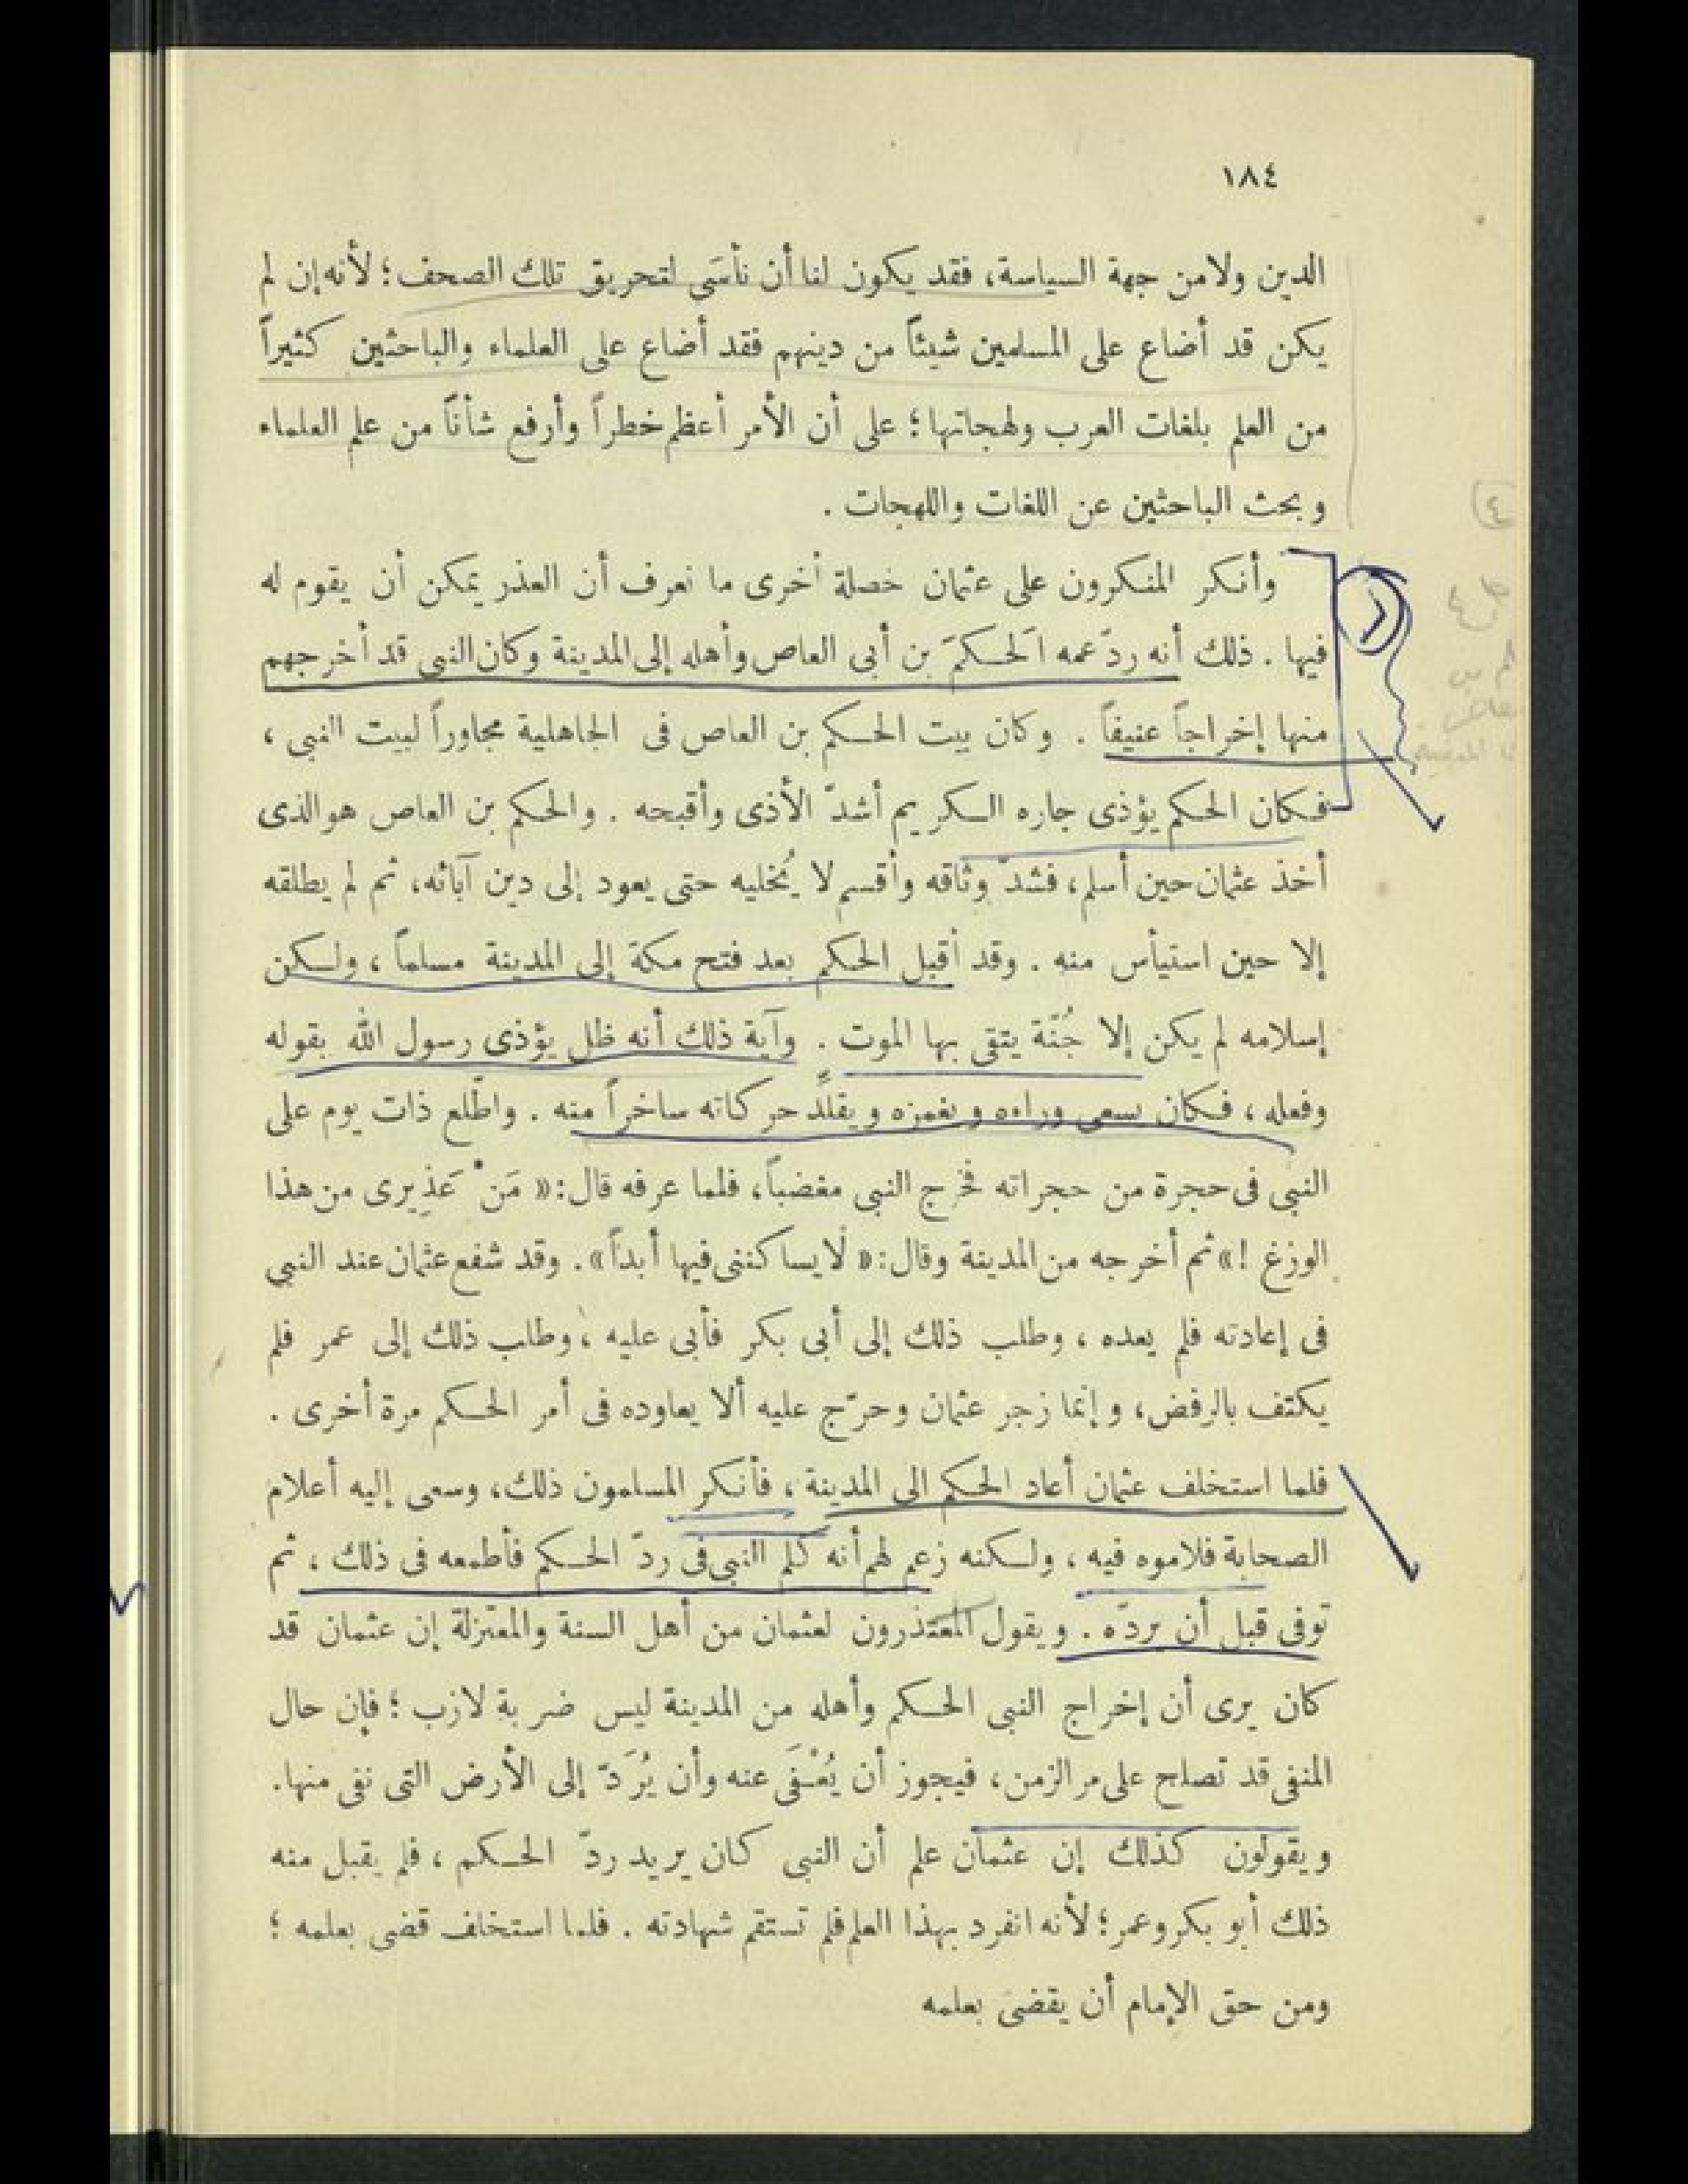 ١٨٤
الدين ولا من جهة السياسة، فقد يكون لنا أن نأسَى لتحريق تلك الصحف؛ لأنه إن لم
يكن قد أضاع على المسلمين شيئاً من دينهم فقد أضاع على العلماء والباحثين كثيراً
من العلم بلغات العرب ولهجاتها؛ على أن الأمر أعظم خطراً وأرفع شأناً من علم العلماء
وبحث الباحثين عن اللغات واللهجات .
وأنكر المنكرون على عثمان خصلة أخرى ما نعرف أن العذر يمكن أن يقوم له
فيها . ذلك أنه ردّ عمه الحَكَمَ بن أبى العاص وأهله إلى المدينة وكان النبى قد أخرجهم
منها إخراجاً عنيفاً . وكان بيت الحكم بن العاص فى الجاهلية مجاوراً لبيت النبى ،
فكان الحكم يؤذى جاره الكريم أشدّ الأذى وأقبحه . والحكم بن العاص هو الذى
أخذ عثمان حين أسلم، فشدّ وثاقه وأقسم لا يُخليه حتى يعود إلى دين آبائه، ثم لم يطلقه
إلا حين استيأس منه . وقد أقبل الحكم بعد فتح مكة إلى المدينة مسلماً ، ولكن
إسلامه لم يكن إلا جُنّة يتقى بها الموت . وآية ذلك أنه ظل يؤذى رسول الله بقوله
وفعله ، فكان يسعى وراءه ويغمزه ويقلّد حركاته ساخراً منه . واطّلع ذات يوم على
النبى فى حجرة من حجراته فخرج النبى مغضباً، فلما عرفه قال: « مَنْ عَذِيرى من هذا
الوزغ ! » ثم أخرجه من المدينة وقال: « لا يساكننى فيها أبداً ». وقد شفع عثمان عند النبى
فى إعادته فلم يعده ، وطلب ذلك إلى أبى بكر فأبى عليه ، وطلب ذلك إلى عمر فلم
يكتف بالرفض، وإنما زجر عثمان وحرّج عليه ألا يعاوده فى أمر الحكم مرة أخرى .
فلما استخلف عثمان أعاد الحكم الى المدينة ، فأنكر المسلمون ذلك، وسعى إليه أعلام
الصحابة فلاموه فيه ، ولكنه زعم لهم أنه كلم النبى فى ردّ الحكم فأطمعه فى ذلك ، ثم
توفى قبل أن يردّه . ويقول المعتذرون لعثمان من أهل السنة والمعتزلة إن عثمان قد
كان يرى أن إخراج النبى الحكم وأهله من المدينة ليس ضربة لازب ؛ فإن حال
المنفى قد تصلح على مر الزمن، فيجوز أن يُعْفَى عنه وأن يُرَدّ إلى الأرض التى نفى منها.
ويقولون كذلك إن عثمان علم أن النبى كان يريد ردّ الحكم ، فلم يقبل منه
ذلك أبو بكر وعمر؛ لأنه انفرد بهذا العلم فلم تستقم شهادته . فلما استخلف قضى بعلمه ؛
ومن حق الإمام أن يقضى بعلمه